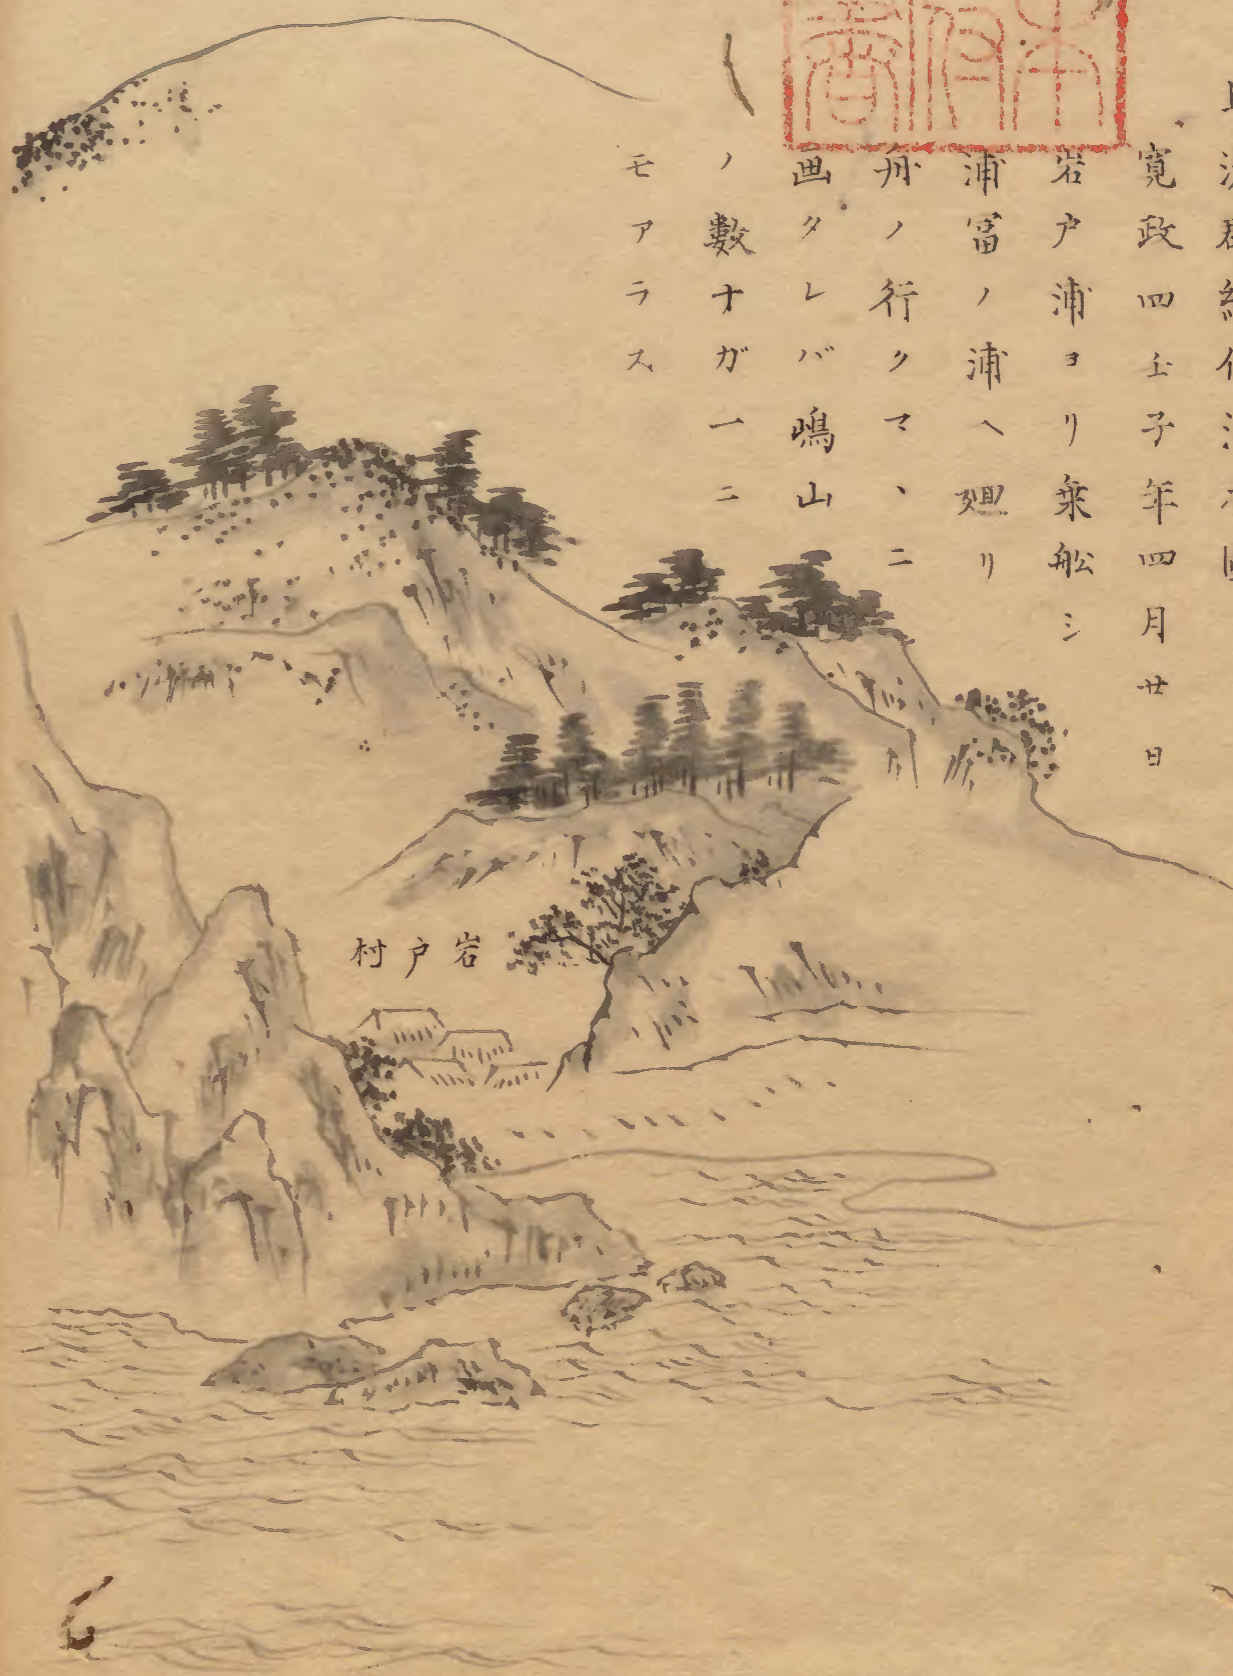 寛政四壬子年四月廿日
岩戸浦ヨリ乗舩シ
浦冨ノ浦ヘ廻リ
舟ノ行クマヽニ
画タレバ嶋山
ノ數十ガ一ニ
モアラス
岩戸村